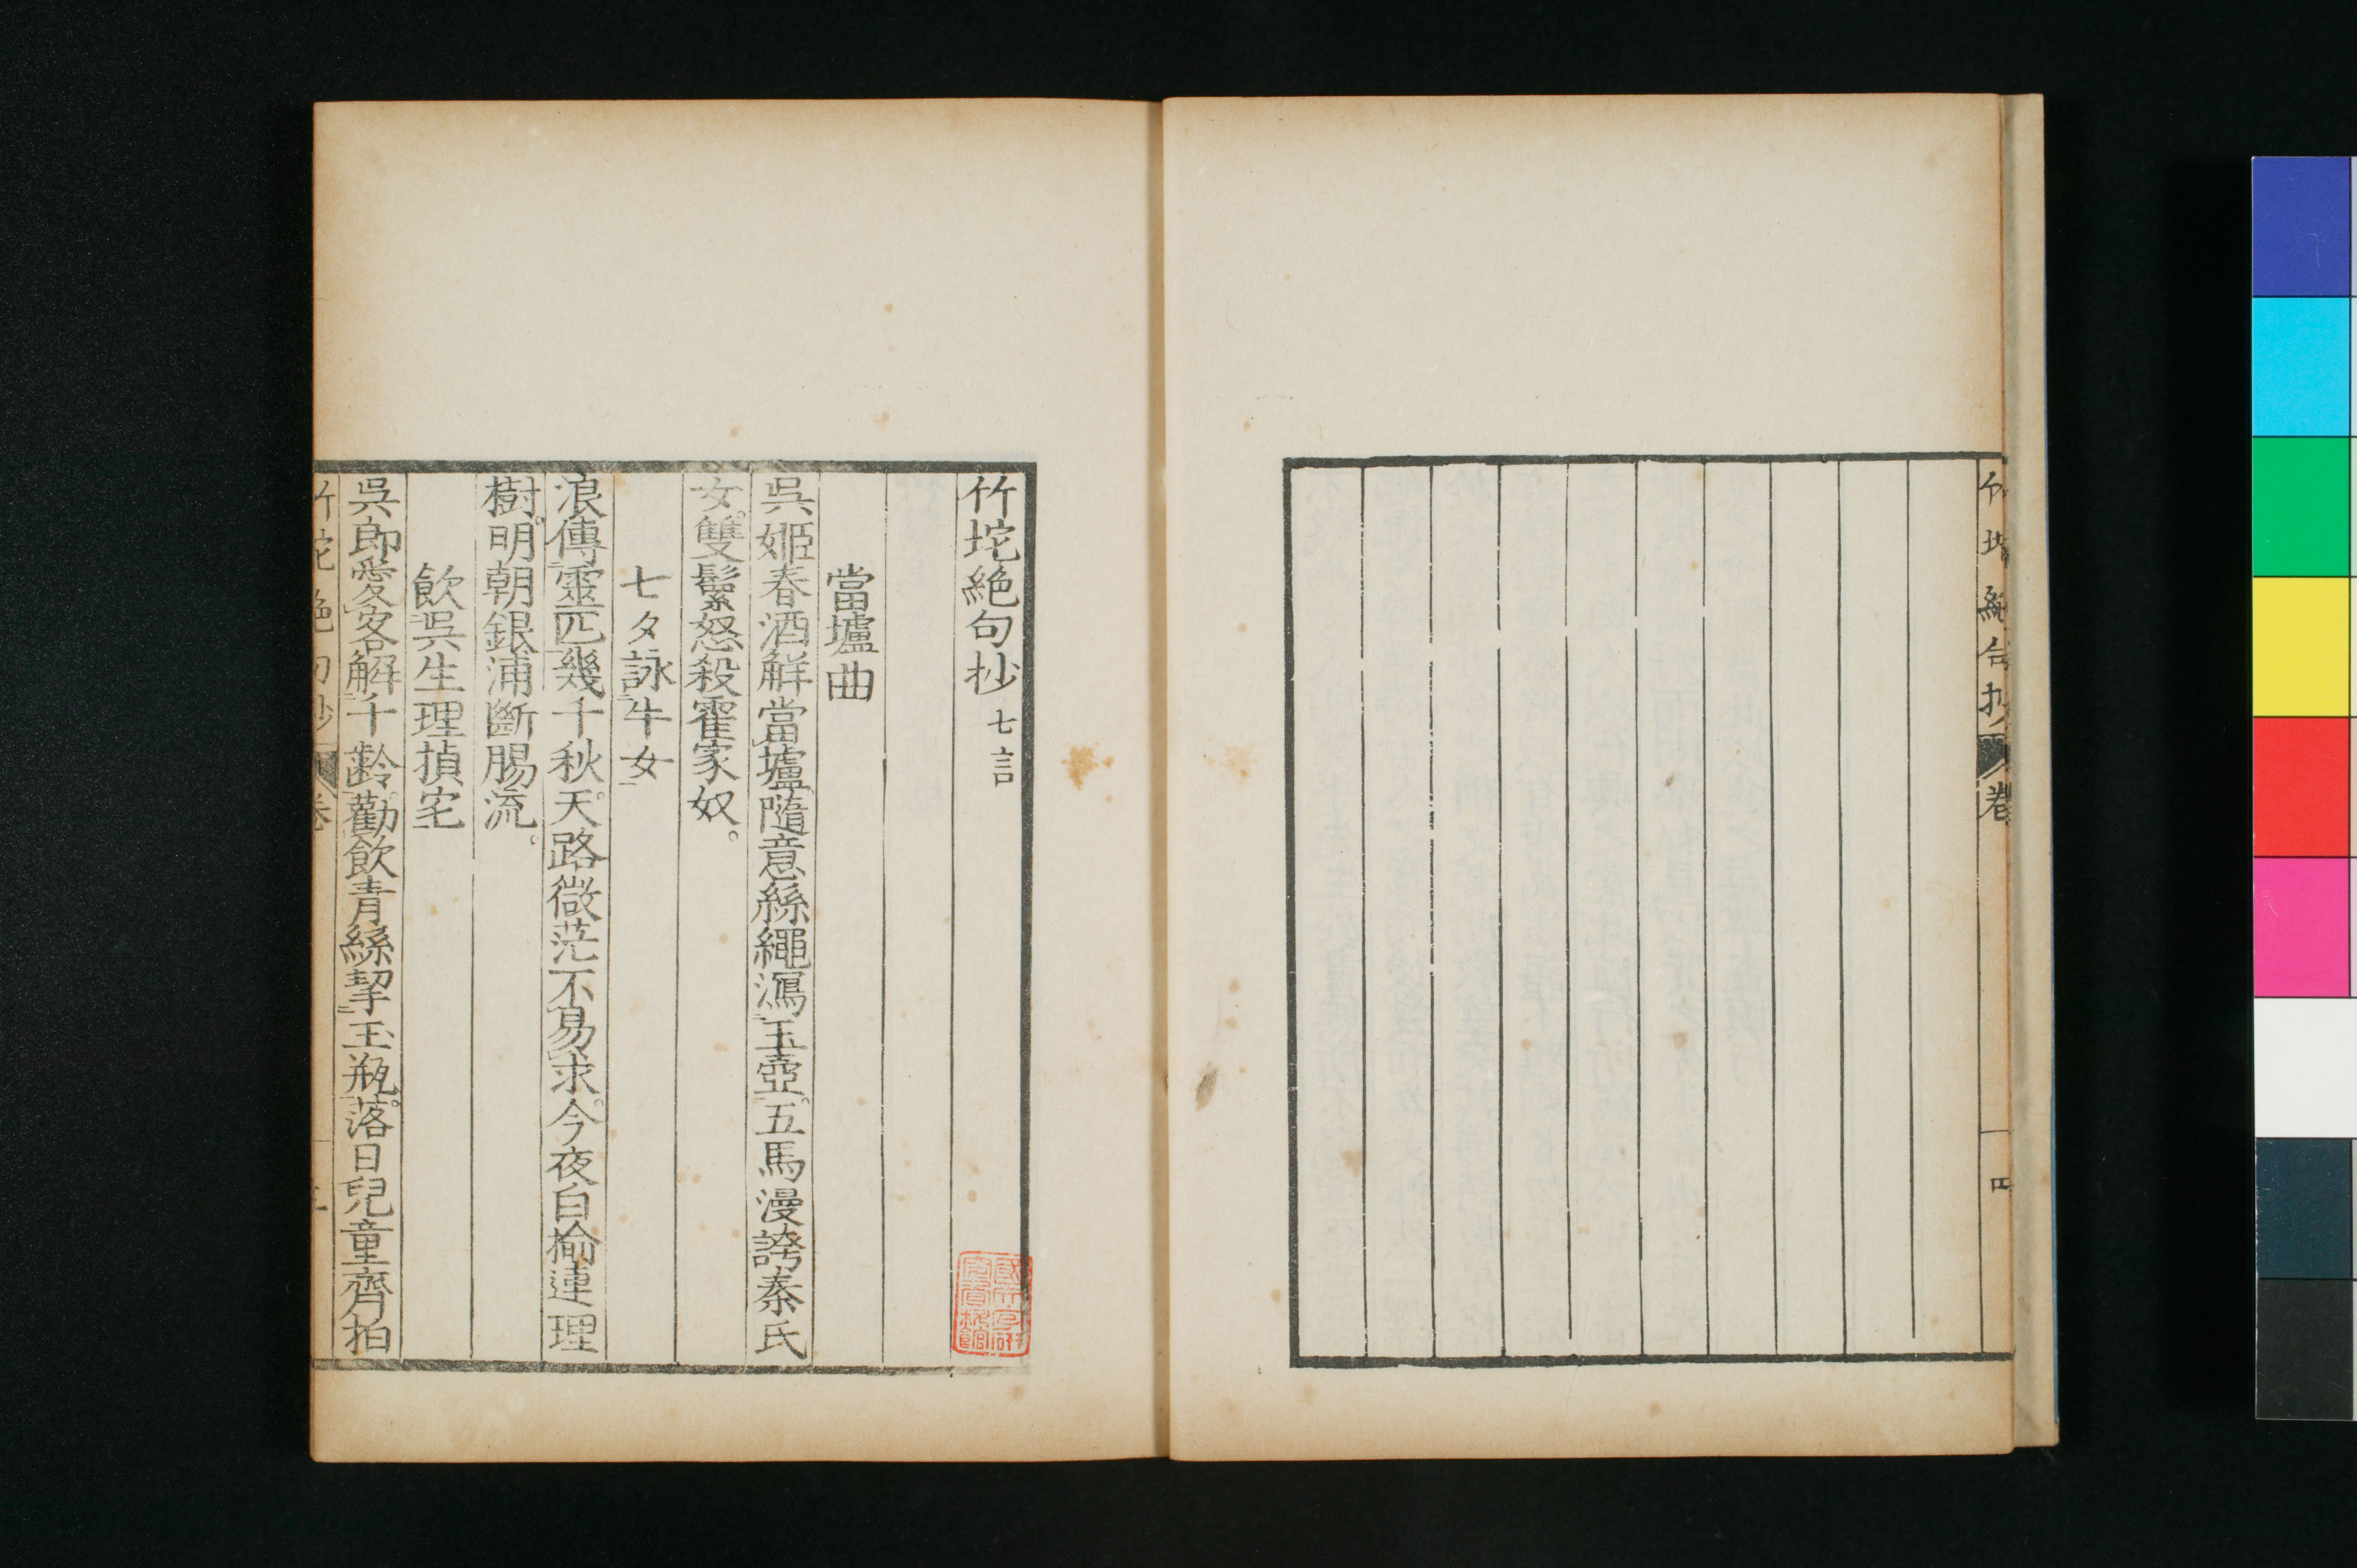 竹垞絶句抄
卷
四
竹垞絶句抄 七言
當壚曲
呉姬春酒鮮當壚隨意絲繩瀉玉壺。五馬漫誇秦氏
女。雙鬟怒殺霍家奴。
七夕詠牛女
浪傳靈匹幾千秋。天路微茫不易求。今夜白榆連理
樹。明朝銀浦斷腸流。
飮呉生理揁宅
呉郎愛客解千齡。勸飮青絲挈玉瓶。落日兒童齊拍
竹垞絶句抄
卷